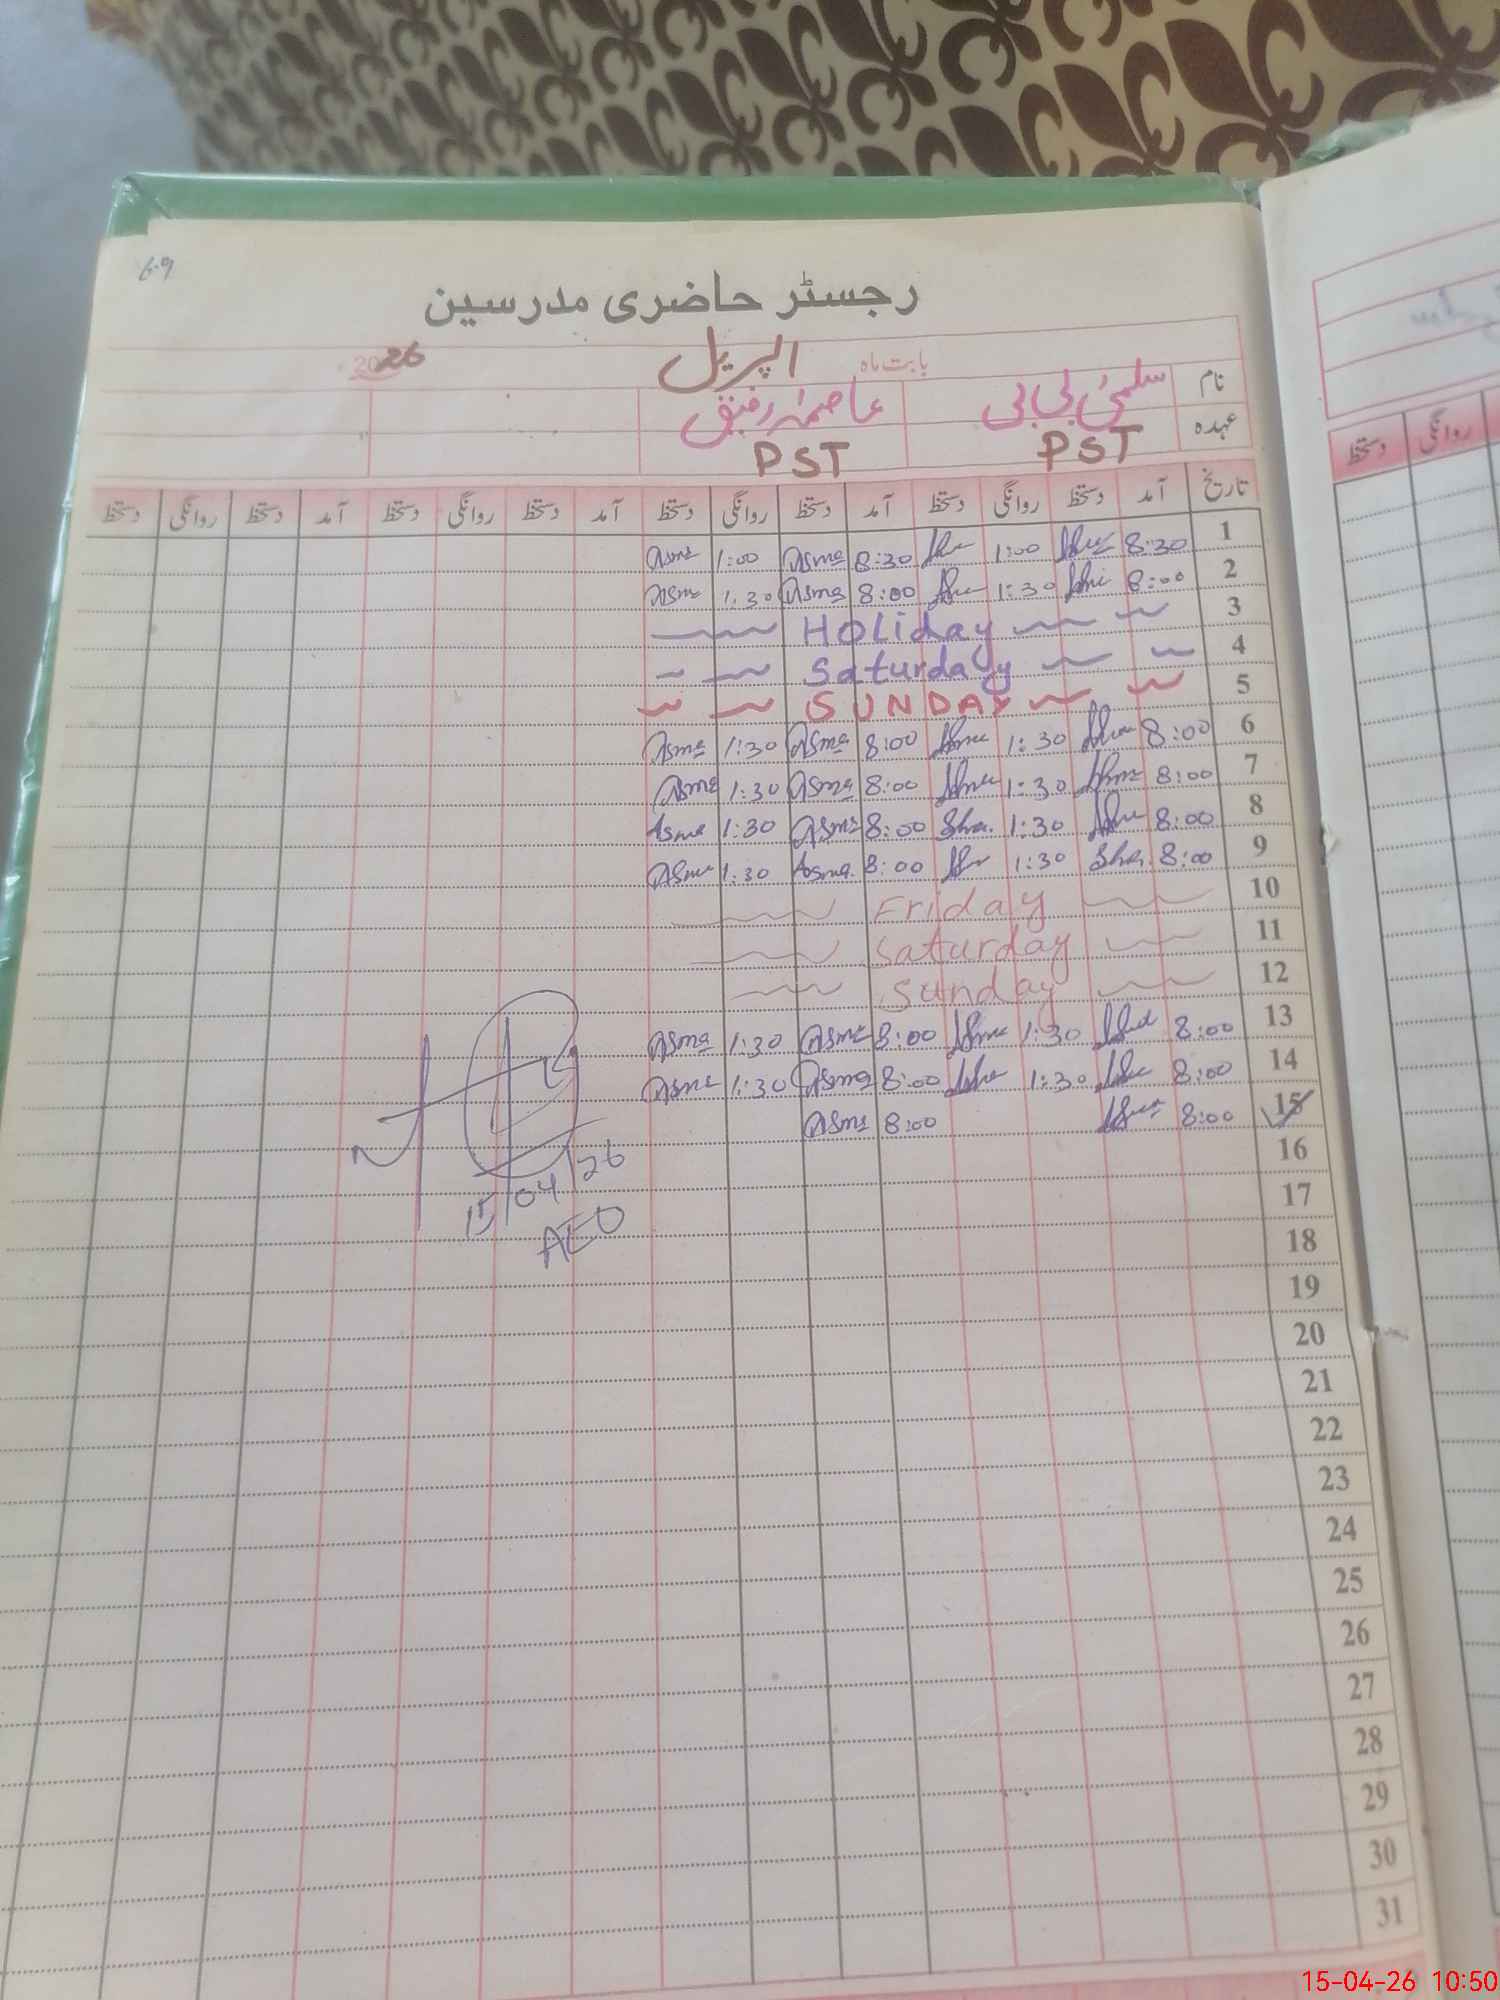 69
رجسٹر حاضری مدرسین
بابت ماہ اپریل 2026
نام سلمیٰ بی بی عاصمہ رفیق
عہدہ PST PST
تاریخ آمد دستخط روانگی دستخط آمد دستخط روانگی دستخط آمد دستخط روانگی دستخط آمد دستخط روانگی دستخط
1 8:30 1:00 8:30 Asma 1:00 Asma
2 8:00 1:30 8:00 Asma 1:30 Asma
3 Holiday
4 Saturday
5 SUNDAY
6 8:00 1:30 8:00 Asma 1:30 Asma
7 8:00 1:30 8:00 Asma 1:30 Asma
8 8:00 1:30 8:00 Asma 1:30 Asma
9 8:00 1:30 8:00 Asma. 1:30 Asma
10 Friday
11 Saturday
12 Sunday
13 8:00 1:30 8:00 Asma 1:30 Asma
14 8:00 1:30 8:00 Asma 1:30 Asma
15 8:00 8:00 Asma
16
17
18
19
20
21
22
23
24
25
26
27
28
29
30
31
15/04/26
AEO
دستخط روانگی
15-04-26 10:50